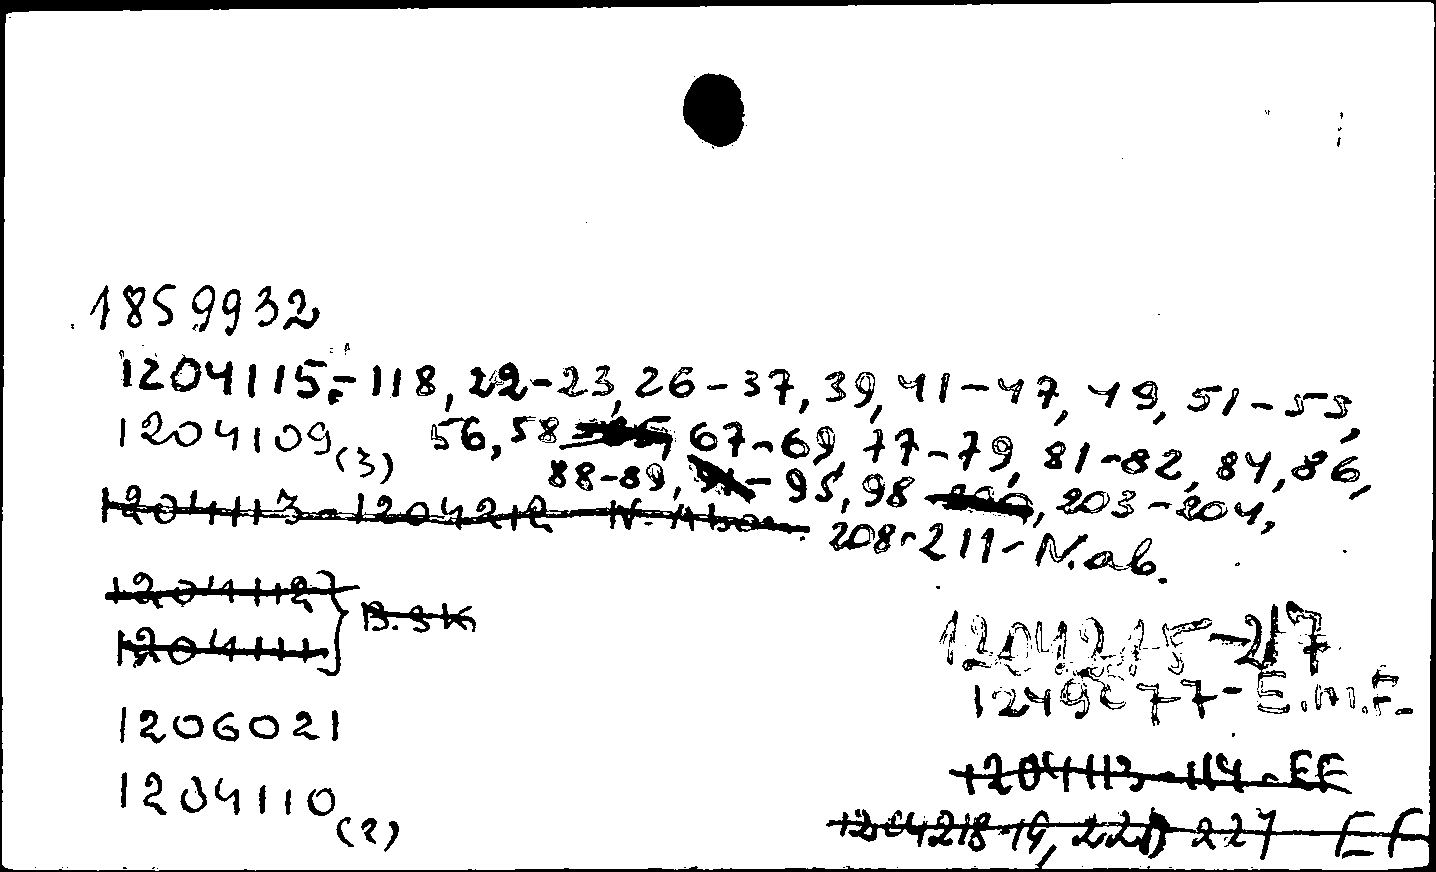 1859932
1204115-118, 22-23, 26-37, 39, 41-47, 49, 51-53,
1204109(3) 56, 58 67-69, 77-79, 81-82, 84, 86,
88-89, -95, 98 , 203-204,
1204113-1204212 N.
208-211-N.ab.
1204112 } B.SK
1204111
1204215-217
1206021
77-E.M.F.
1204113-114-EE
1204110(2)
1204218-19, 227 EF